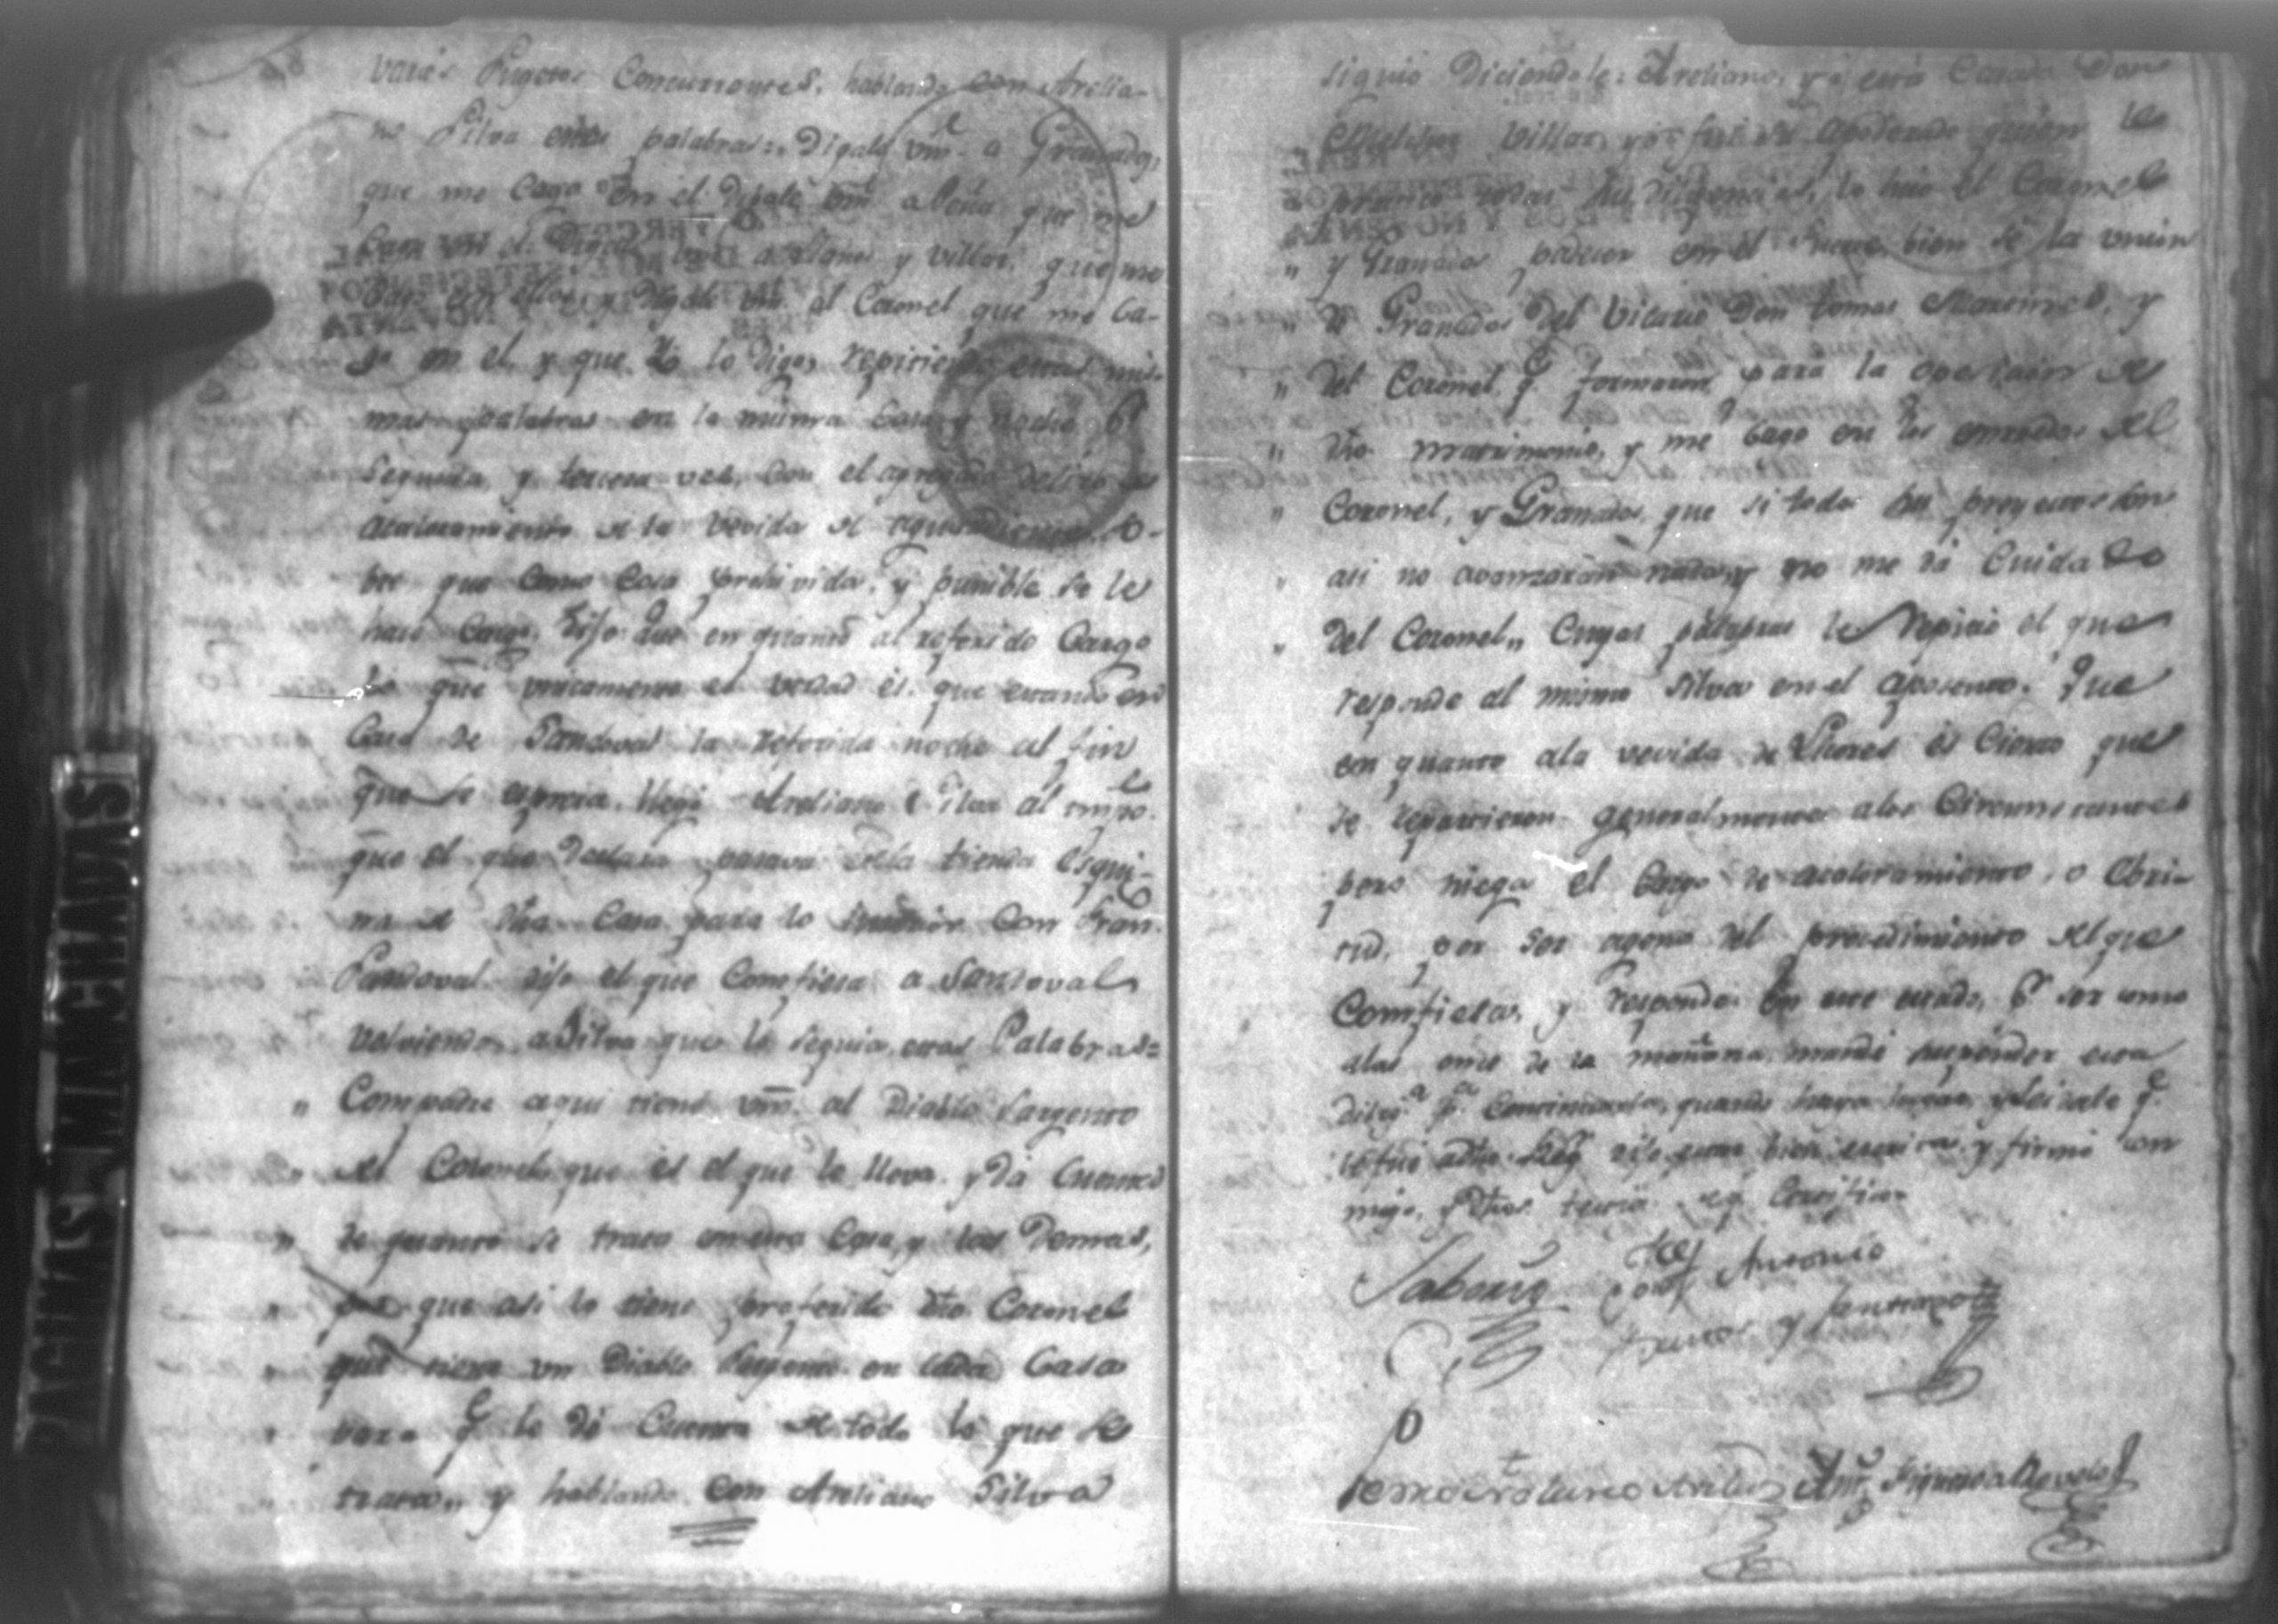 varios Sugetos Concurrentes, hablando con Arelia-
no Silva estas palabras: Digale Vm. a Granados,
que me Cago en el Digale Vm. a Peña que me
Cago en el Digale Vm. a Llanos y Villar, que me
Cago en ellos, y Digale Vm. al Coronel que me Ca-
go en el y que Yo lo digo, repitiendo estas mis-
mas palabras en la misma Casa y noche Pr
segunda y tercera vez, con el agregado
acaloramiento de la vevida de aguardiente so-
bre que como cosa prohivida, y punible se le
hace Cargo, Dijo: Que en quanto al referido Cargo
lo que unicamente es verdad es, que estando en
Casa de Sandoval la referida noche al fin
que se expresa llegó Areliano Silva al tmpo.
que el que declara pasava de la tienda esqui-
na de dha. Casa para lo interior con Fran.co
Sandoval dijo el que Confiesa a Sandoval
volviendo a Silva que le seguia, estas Palabras:
" Compadre aqui tiene Vm. al Diablo Sargento
" del Coronel, que es el que le lleva, y da Cuenta
" de quanto se trata en esta Casa, y las Demas,
" que asi lo tiene proferido dho. Coronel
" que tiene un Diablo Sargento en cada Casa
" para q.e le dé Cuenta de todo lo que se
" trata,, y hablando con Areliano Silva
siguio Diciendole: Areliano, ya está Casado Don
Melchor Villar, yo fui su apoderado quien le
practicó todas sus diligencias, lo hizo el Coronel
" y Granados padecer en el bien sé la union
" de Granados del Vicario Don Tomas Martines, y
" del Coronel q.e formaron para la opocision de
" dho. matrimonio, y me Cago en los enredos del
" Coronel, y Granados, que si todos sus proyectos son
" asi no avanzarán nada, y no me dá Cuidado
" del Coronel,, Cuyas palabras le repitió el que
responde al mismo Silva en el aposento. Que
en quanto a la vevida de Licores es Cierto que
se repartieron generalmente a los Circunstantes
pero niega el Cargo de acaloramiento, o Ebri-
ed, por ser ageno del procedimiento del que
Confiesa, y responde. En este estado, Pr ser como
a las once de la mañana, mandé suspender esta
dilig.a p.a Continuarla, quando haya lugar, y leidale q.e
le fue dijo estar bien escrita, y firmó con
migo, y dhos. testig.s
José Antonio
y